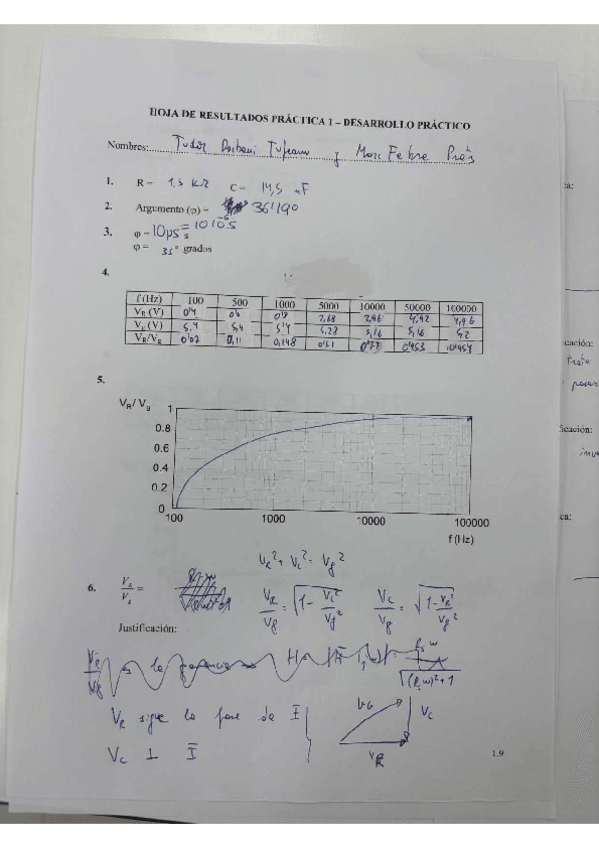 HOJA DE RESULTADOS PRÁCTICA 1 – DESARROLLO PRÁCTICO
Nombres: Tudor y Marc Febre
1. R = 1,5 KΩ C = 14,5 nF
2. Argumento (φ) = 36'190
3. φ = 10µs = 10·10⁻⁶ s
φ = 35° grados
4.
f (Hz) 100 500 1000 5000 10000 50000 100000
V_R (V) 0'4 0'6 0'8 2,68 3,96 4,92 4,96
V_g (V) 5,4 5,4 5,4 5,28 5,16 5,16 5,2
V_R/V_g 0'07 0,11 0,148 0'51 0'77 0'953 0'954
5.
V_R/ V_g
1
0.8
0.6
0.4
0.2
0
100 1000 10000 100000
f (Hz)
V_R² + V_C² = V_g²
6. V_R/V_g = V_R/V_g = √(1 - V_C²/V_g²) V_C/V_g = √(1 - V_R²/V_g²)
Justificación:
V_R sigue la fase de Ī
V_C ⊥ Ī
V_G
V_C
V_R
1.9
ca:
cación:
ficación:
ca: